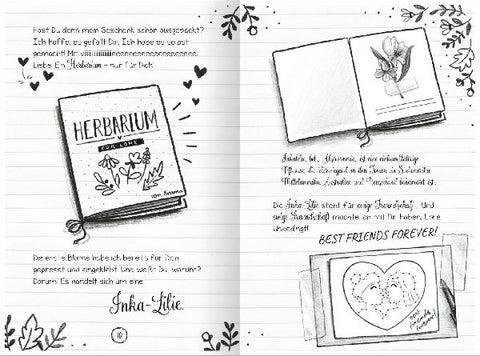 Hast Du denn mein Geschenk schon ausgepackt?
Ich hoffe, es gefällt Dir. Ich habe es selbst
gemacht! Mit
Liebe. Ein Herbarium – nur für Dich.
HERBARIUM
FÜR LORE
von Emma
Die erste Blume habe ich bereits für Dich
gepresst und eingeklebt. Und weißt Du, warum?
Darum: Es handelt sich um eine
Inka-Lilie.
10
Inkalilie, bot. Alstroemeria, ist eine
Pflanze, die in den Tropen in Südamerika,
Mittelamerika, Australien und Neuseeland beheimatet ist.
Die Inka-Lilie steht für ewige Freundschaft. Und
ewige Freundschaft möchte ich mit Dir haben, Lore.
Unbedingt!
BEST FRIENDS FOREVER!